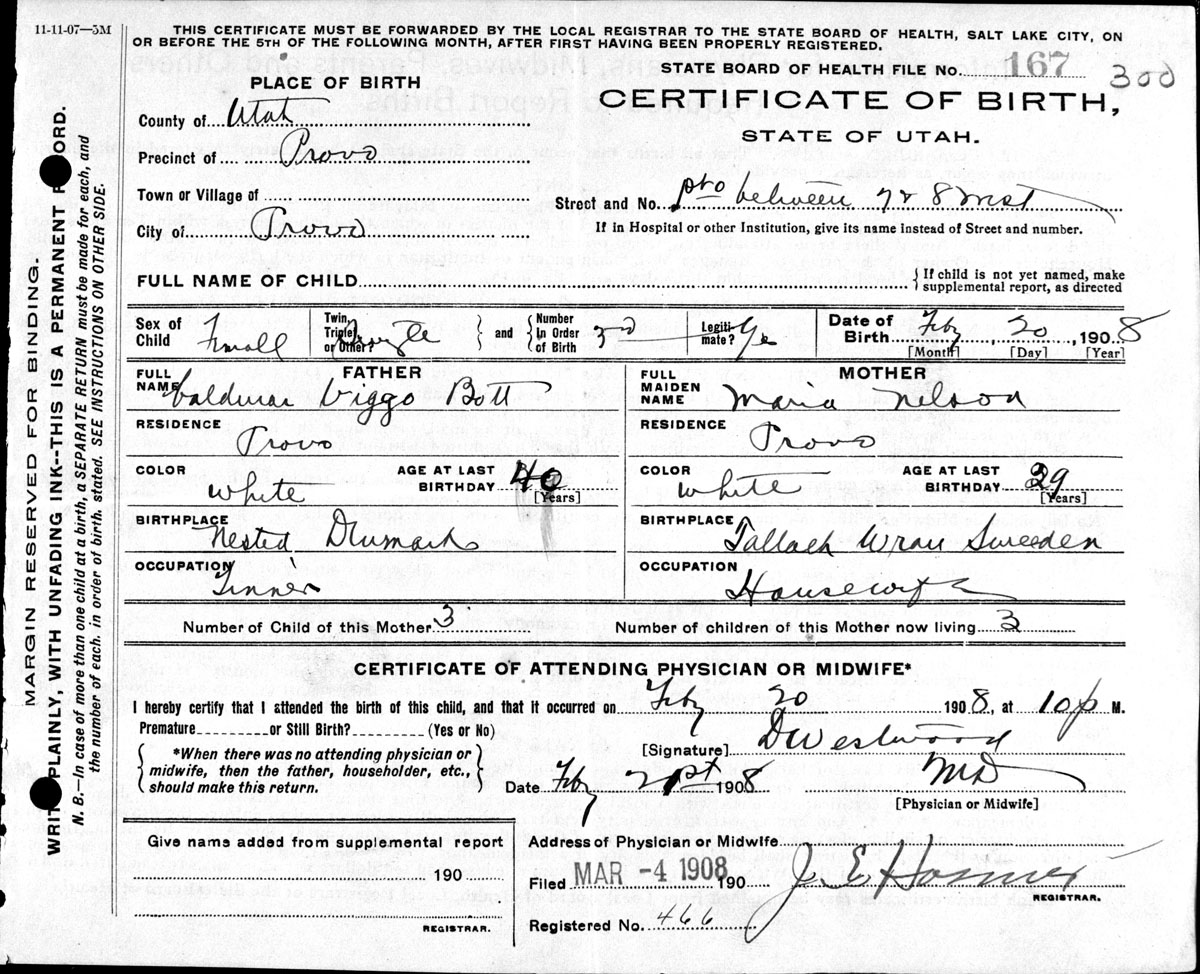 11-11-07—5M
THIS CERTIFICATE MUST BE FORWARDED BY THE LOCAL REGISTRAR TO THE STATE BOARD OF HEALTH, SALT LAKE CITY, ON
OR BEFORE THE 5TH OF THE FOLLOWING MONTH, AFTER FIRST HAVING BEEN PROPERLY REGISTERED.
MARGIN RESERVED FOR BINDING.
PLAINLY, WITH UNFADING INK--THIS IS A PERMANENT
N. B.—In case of more than one child at a birth, a SEPARATE RETURN must be made for each, and
the number of each, in order of birth, stated. SEE INSTRUCTIONS ON OTHER SIDE.
PLACE OF BIRTH
STATE BOARD OF HEALTH FILE No. 167 300
CERTIFICATE OF BIRTH,
STATE OF UTAH.
County of Utah
Precinct of Provo
Town or Village of
City of Provo
Street and No. between 7 & 8 west
If in Hospital or other Institution, give its name instead of Street and number.
FULL NAME OF CHILD
If child is not yet named, make
supplemental report, as directed
Sex of Child Femall
Twin, Triplet, or Other? Single
and
Number In Order of Birth 3rd
Legitimate? Yes
Date of Birth Feby 20 1908
[Month] [Day] [Year]
FATHER
FULL NAME Valdemar Viggo Bott
RESIDENCE Provo
COLOR white
AGE AT LAST BIRTHDAY 40 [Years]
BIRTHPLACE Nested Denmark
OCCUPATION Tinner
MOTHER
FULL MAIDEN NAME Maria Nelson
RESIDENCE Provo
COLOR white
AGE AT LAST BIRTHDAY 29 [Years]
BIRTHPLACE Sweeden
OCCUPATION Housewife
Number of Child of this Mother 3
Number of children of this Mother now living 3
CERTIFICATE OF ATTENDING PHYSICIAN OR MIDWIFE*
I hereby certify that I attended the birth of this child, and that it occurred on Feby 20 1908, at 10 p M.
Premature or Still Birth? (Yes or No)
*When there was no attending physician or
midwife, then the father, householder, etc.,
should make this return.
[Signature] D Westwood
Date Feby 21st 1908 MD
[Physician or Midwife]
Give name added from supplemental report
190
REGISTRAR.
Address of Physician or Midwife
Filed MAR -4 1908 190 J. E. Hosmer
REGISTRAR.
Registered No. 466